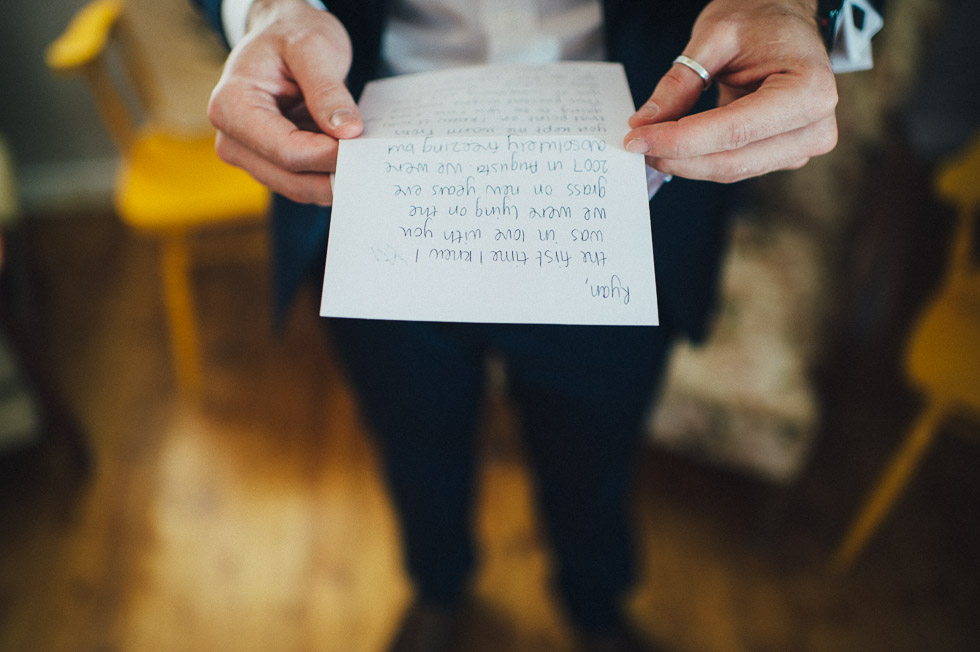 Ryan,
the first time I knew I
was in love with you
we were lying on the
grass on new years eve
2007 in Augusta we were
absolutely freezing but
you kept me warm from
that point on I knew it